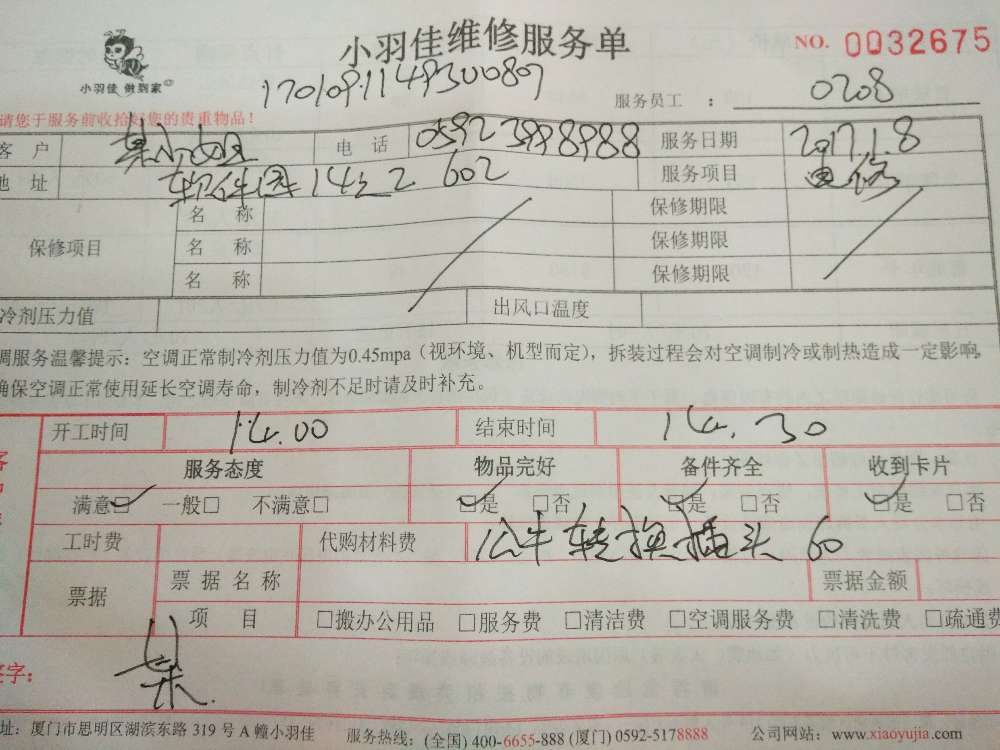 小羽佳维修服务单
NO. 0032675
小羽佳 做到家
170109114930089
服务员工 : 0208
请您于服务前收拾好您的贵重物品!
客 户 小姐 电 话 0592 3998988 服务日期 2017.1.8
地 址 软件园 14之2 602 服务项目 电修
保修项目 名 称 保修期限
名 称 保修期限
名 称 保修期限
冷剂压力值 出风口温度
调服务温馨提示:空调正常制冷剂压力值为0.45mpa(视环境、机型而定),拆装过程会对空调制冷或制热造成一定影响,
确保空调正常使用延长空调寿命,制冷剂不足时请及时补充。
开工时间 14.00 结束时间 14.30
服务态度 物品完好 备件齐全 收到卡片
满意□ 一般□ 不满意□ □是 □否 □是 □否 □是 □否
工时费 代购材料费 公牛转换插头 60
票据 票据名称 票据金额
项 目 □搬办公用品 □服务费 □清洁费 □空调服务费 □清洗费 □疏通费
签字:
址:厦门市思明区湖滨东路 319 号 A 幢小羽佳 服务热线:(全国) 400-6655-888 (厦门) 0592-5178888 公司网站:www.xiaoyujia.com